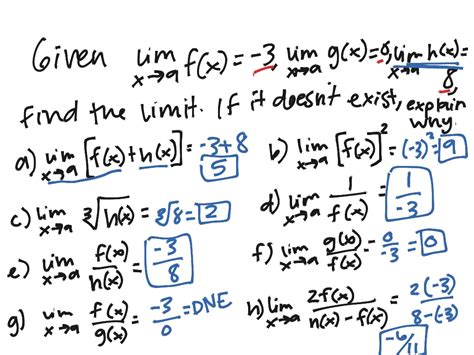 Given lim x→a f(x) = -3, lim x→a g(x) = 0, lim x→a h(x) = 8,
find the limit. If it doesn't exist, explain why.
a) lim x→a [f(x) + h(x)] = -3+8
5
b) lim x→a [f(x)]² = (-3)² = 9
c) lim x→a ∛h(x) = ∛8 = 2
d) lim x→a 1/f(x) = 1/-3
e) lim x→a f(x)/h(x) = -3/8
f) lim x→a g(x)/f(x) = 0/-3 = 0
g) lim x→a f(x)/g(x) = -3/0 = DNE
h) lim x→a 2f(x)/h(x) - f(x) = 2(-3)/8-(-3)
-6/11